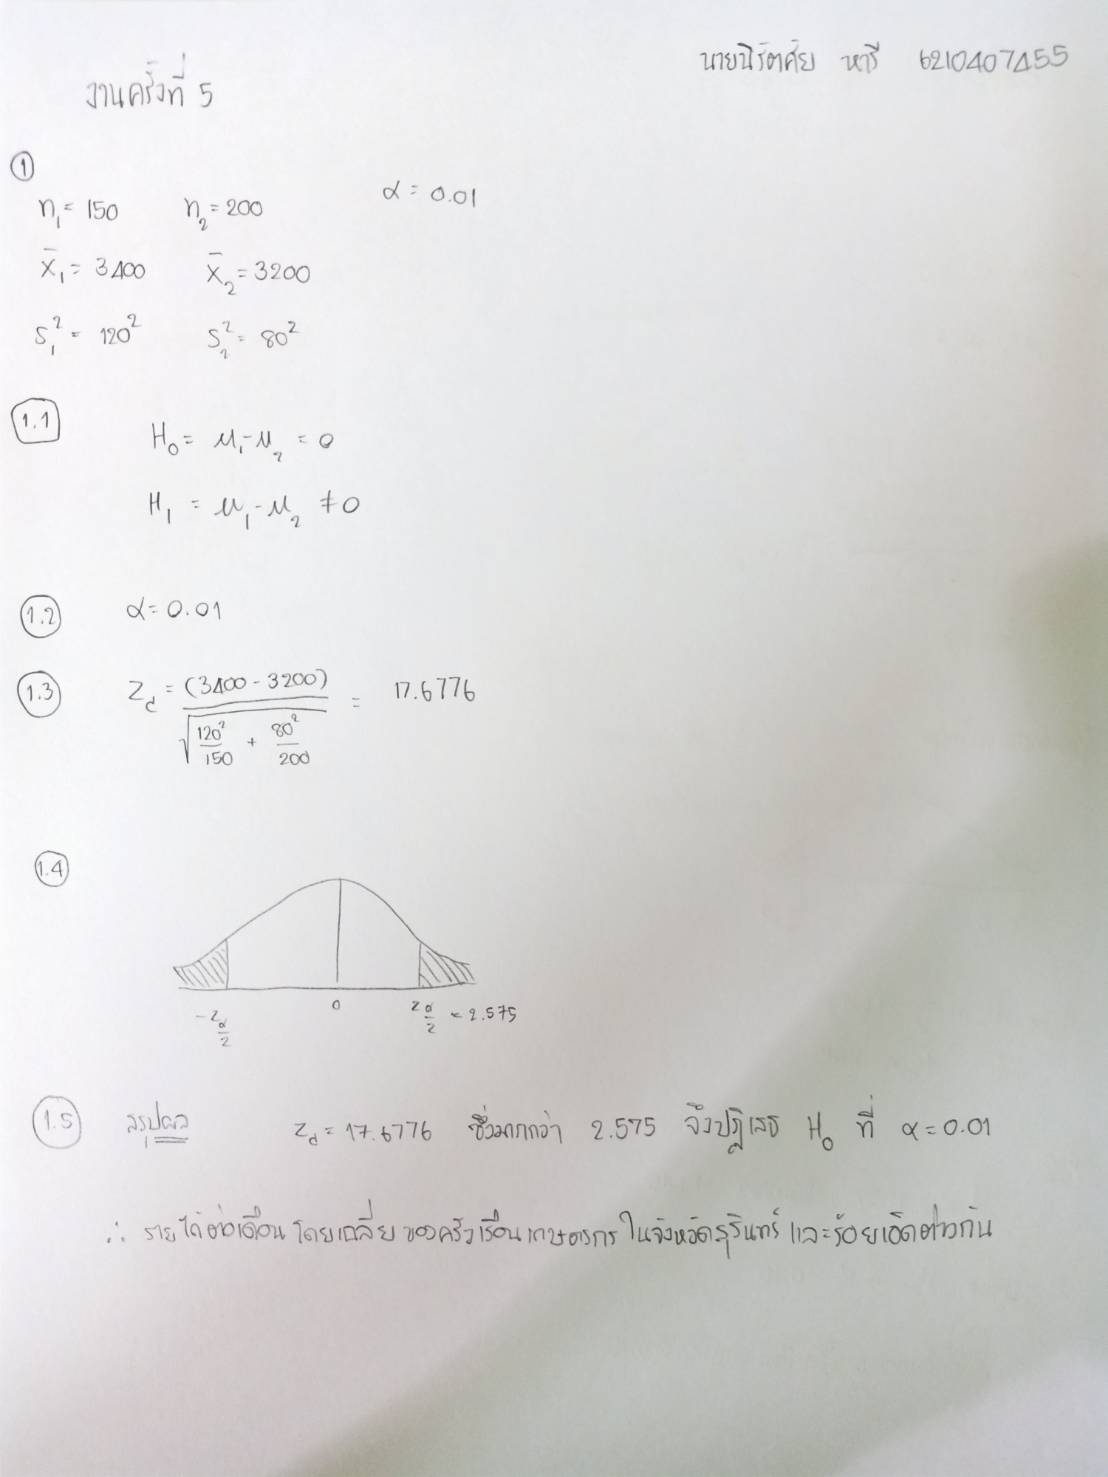 นายนิรัตศัย หารี 6210407455
งานครั้งที่ 5
①
n₁ = 150 n₂ = 200 α = 0.01
x̄₁ = 3400 x̄₂ = 3200
S₁² = 120² S₂² = 80²
1.1 H₀ = μ₁-μ₂ = 0
H₁ = μ₁-μ₂ ≠ 0
1.2 α = 0.01
1.3 Z_c = (3400 - 3200) / √(120²/150 + 80²/200) = 17.6776
1.4
-Z_α/2 0 Z_α/2 = 2.575
1.5 สรุปผล Z_c = 17.6776 ซึ่งมากกว่า 2.575 จึงปฏิเสธ H₀ ที่ α = 0.01
∴ รายได้ต่อเดือนโดยเฉลี่ยของครัวเรือนเกษตรกรในจังหวัดสุรินทร์ และร้อยเอ็ดต่างกัน